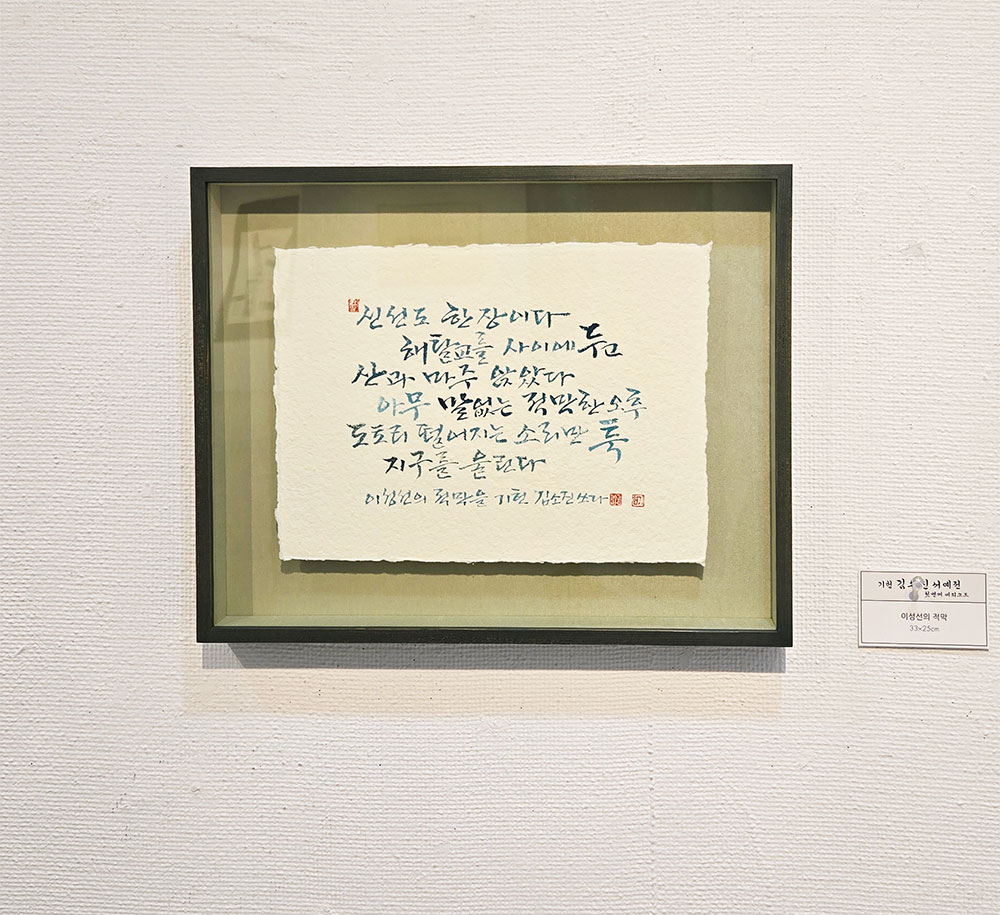 신선도 한 장이다
해탈교를 사이에 두고
산과 마주 앉았다
아무 말없는 적막한 오후
도토리 떨어지는 소리만 툭
지구를 울린다
이성선의 적막을 기현 김소진 쓰다
기현 김 서예전
이성선의 적막
33×25cm